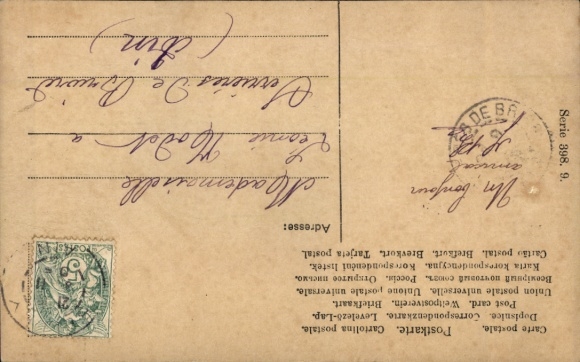 Carte postale. Postkarte. Cartolina postale.
Dopisnice. Correspondenzkarte. Levelező-Lap.
Post card. Weltpostverein. Briefkaart.
Union postale universelle. Unione postale universale.
Всемірный почтовый союзъ. Россія. Открытое письмо.
Karta korespondencyjna. Korespondenční lístek.
Cartão postal. Brefkort. Brevkort. Tarjeta postal.
Adresse:
Un bonjour
amical
Mademoiselle
Léonie Hodot à
Serrières De Briord
(Ain)
S DE BR
Serie 398. 9.
POSTES
5